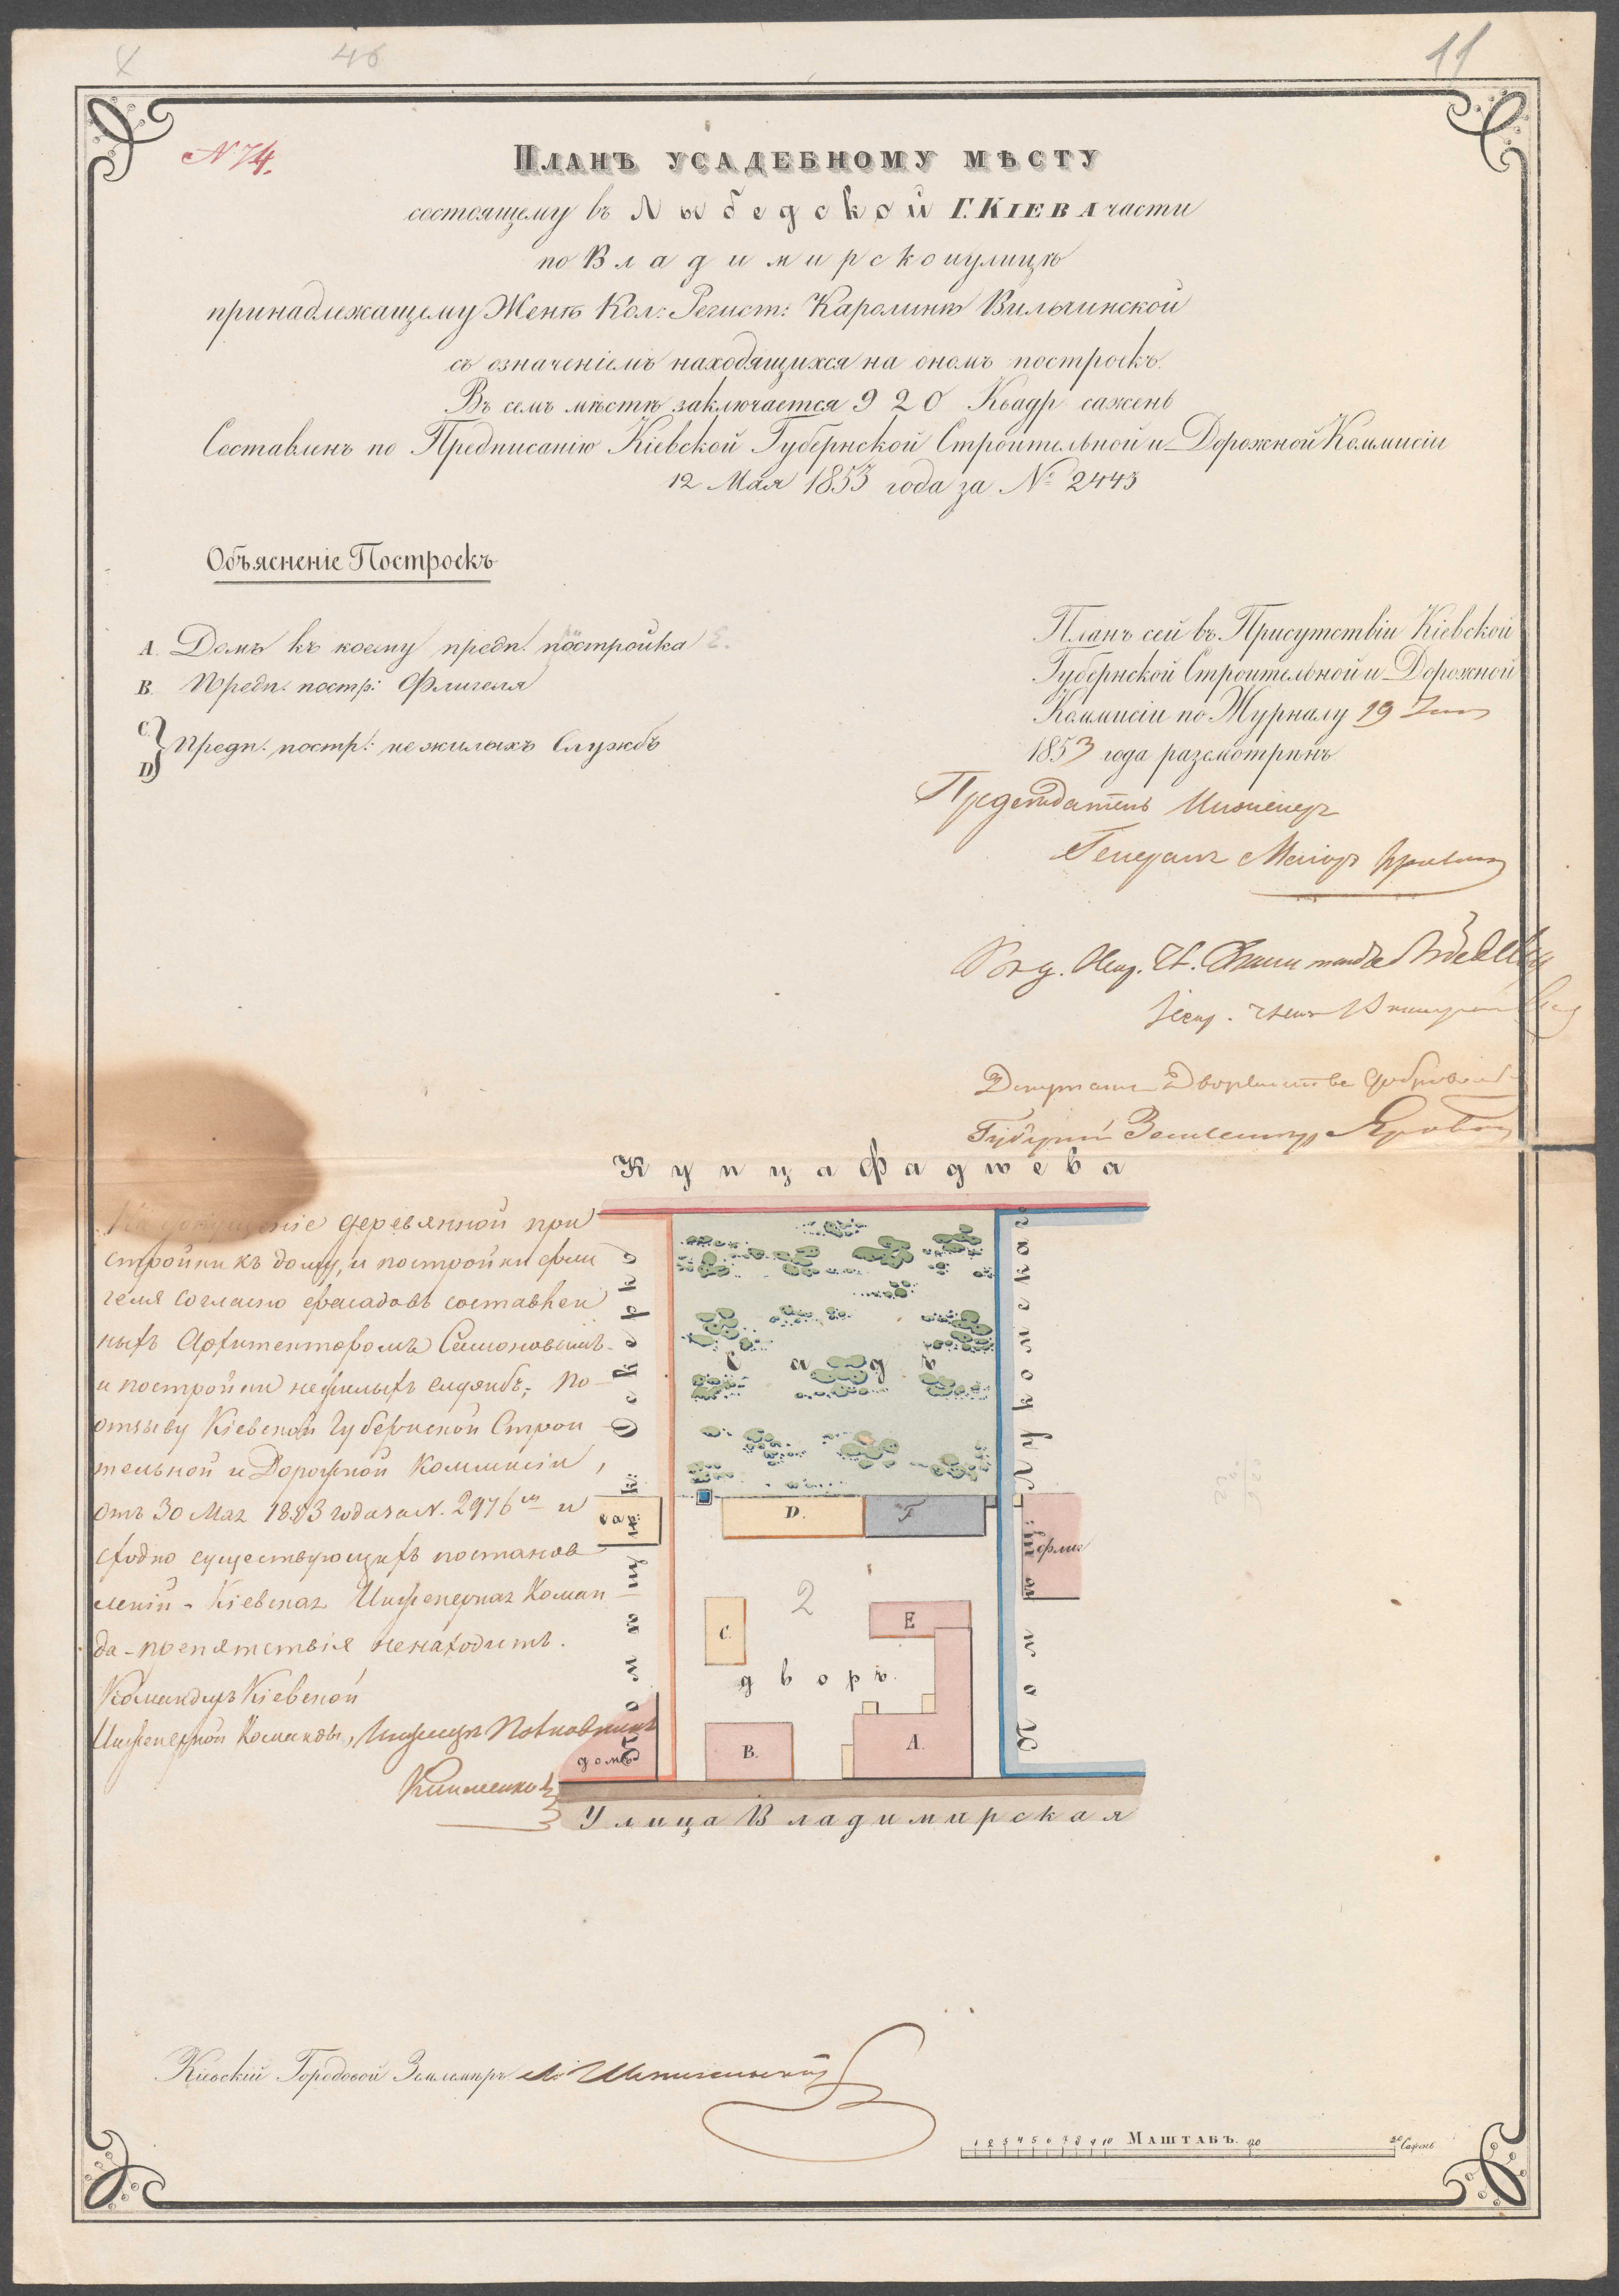 46
11
N 74.
Планъ усадебному мѣсту
состоящему въ Лыбедской Г. Кіева части
по Владимирской улицѣ
принадлежащему Женѣ Кол: Регист: Каролинѣ Вильчинской
съ означеніемъ находящихся на ономъ построекъ.
Въ семъ мѣстѣ заключается 920 Квадр сажень
Составленъ по Предписанію Кіевской Губернской Строительной и Дорожной Коммисіи
12 Мая 1853 года за № 2443
Объясненіе Построекъ
А. Домъ къ коему предп. постройка Е.
В. Предп. постр: Флигеля
С.
D } Предп. постр: нежилыхъ Службъ
Планъ сей въ Присутствіи Кіевской
Губернской Строительной и Дорожной
Коммисіи по Журналу 19
1853 года разсмотрѣнъ
Предсѣдатель Инженеръ
Генералъ Маіоръ
Депутатъ Дворянства
Землемѣръ
Купца Фадѣева
деревянной при
стройки къ дому, и постройки фли
геля согласно фасадовъ составлен
ныхъ Архитекторомъ
и постройки нежилыхъ службъ, по
отзыву Кіевской Губернской Строи
тельной и Дорожной Коммисіи,
отъ 30 Мая 1853 года за N. 2976 и
сходно существующихъ постанов
леній - Кіевская Инженерная Коман
да - препятствія не находитъ.
Командиръ Кіевской
Инженерной Команды, Инженеръ Полковникъ
Садъ
D.
F
сар:
флиг
2
С.
Е
дворъ.
В.
А.
домъ
Улица Владимирская
Кіевскій Городовой Землемѣръ
1 2 3 4 5 6 7 8 9 10 Маштабъ. 20 30 Сажень